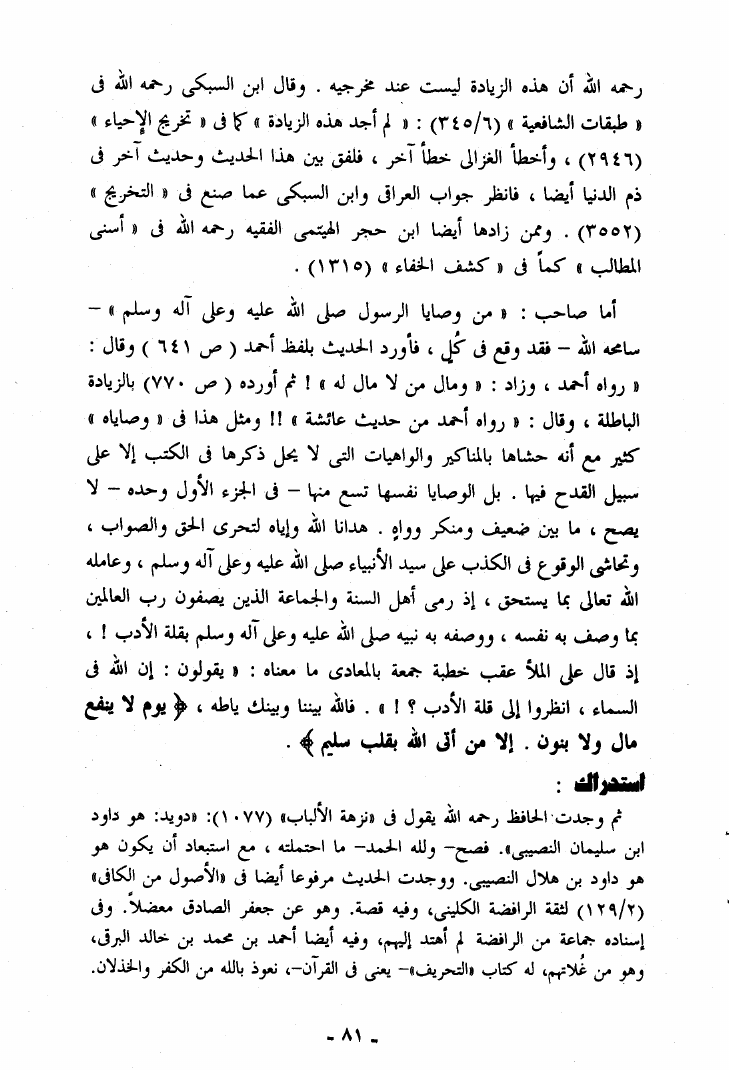 رحمه الله أن هذه الزيادة ليست عند مخرجيه . وقال ابن السبكى رحمه الله فى
« طبقات الشافعية » (٣٤٥/٦) : « لم أجد هذه الزيادة » كما فى « تخريج الإحياء »
(٢٩٤٦) ، وأخطأ الغزالى خطأ آخر ، فلفق بين هذا الحديث وحديث آخر فى
ذم الدنيا أيضا ، فانظر جواب العراقى وابن السبكى عما صنع فى « التخريج »
(٣٥٥٢) . وممن زادها أيضا ابن حجر الهيتمى الفقيه رحمه الله فى « أسنى
المطالب » كماً فى « كشف الخفاء » (١٣١٥) .
أما صاحب : « من وصايا الرسول صلى الله عليه وعلى آله وسلم » –
سامحه الله – فقد وقع فى كُلٍ ، فأورد الحديث بلفظ أحمد ( ص ٦٤١ ) وقال :
« رواه أحمد ، وزاد : « ومال من لا مال له » ! ثم أورده ( ص ٧٧٠) بالزيادة
الباطلة ، وقال : « رواه أحمد من حديث عائشة » !! ومثل هذا فى « وصاياه »
كثير مع أنه حشاها بالمناكير والواهيات التى لا يحل ذكرها فى الكتب إلا على
سبيل القدح فيها . بل الوصايا نفسها تسع منها – فى الجزء الأول وحده – لا
يصح ، ما بين ضعيف ومنكر وواهٍ . هدانا الله وإياه لتحرى الحق والصواب ،
وتحاشى الوقوع فى الكذب على سيد الأنبياء صلى الله عليه وعلى آله وسلم ، وعامله
الله تعالى بما يستحق ، إذ رمى أهل السنة والجماعة الذين يصفون رب العالمين
بما وصف به نفسه ، ووصفه به نبيه صلى الله عليه وعلى آله وسلم بقلة الأدب ! ،
إذ قال على الملأ عقب خطبة جمعة بالمعادى ما معناه : « يقولون : إن الله فى
السماء ، انظروا إلى قلة الأدب ؟ ! » . فالله بيننا وبينك ياطه ، ﴿ يوم لا ينفع
مال ولا بنون . إلا من أتى الله بقلب سليم ﴾ .
استدراك :
ثم وجدت الحافظ رحمه الله يقول فى «نزهة الألباب» (١٠٧٧): «دويد: هو داود
ابن سليمان النصيبى». فصح– ولله الحمد– ما احتملته ، مع استبعاد أن يكون هو
هو داود بن هلال النصيبى. ووجدت الحديث مرفوعا أيضا فى «الأصول من الكافى»
(١٢٩/٢) لثقة الرافضة الكلينى، وفيه قصة. وهو عن جعفر الصادق معضلاً. وفى
إسناده جماعة من الرافضة لم أهتد إليهم، وفيه أيضا أحمد بن محمد بن خالد البرقى،
وهو من غُلاتهم، له كتاب «التحريف»– يعنى فى القرآن–، نعوذ بالله من الكفر والخذلان.
- ٨١ -